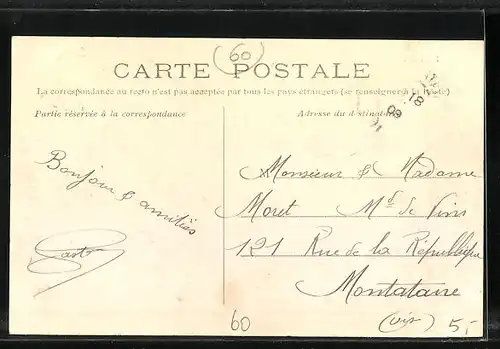 (60)
CARTE POSTALE
La correspondance au recto n'est pas acceptée par tous les pays étrangers (se renseigner à la Poste)
Partie réservée à la correspondance
Adresse du destinataire
18
09
Bonjour & amitiés
Gaston
Monsieur & Madame
Moret Md de Vins
121 Rue de la République
Montataire
(Oise)
60
5,-